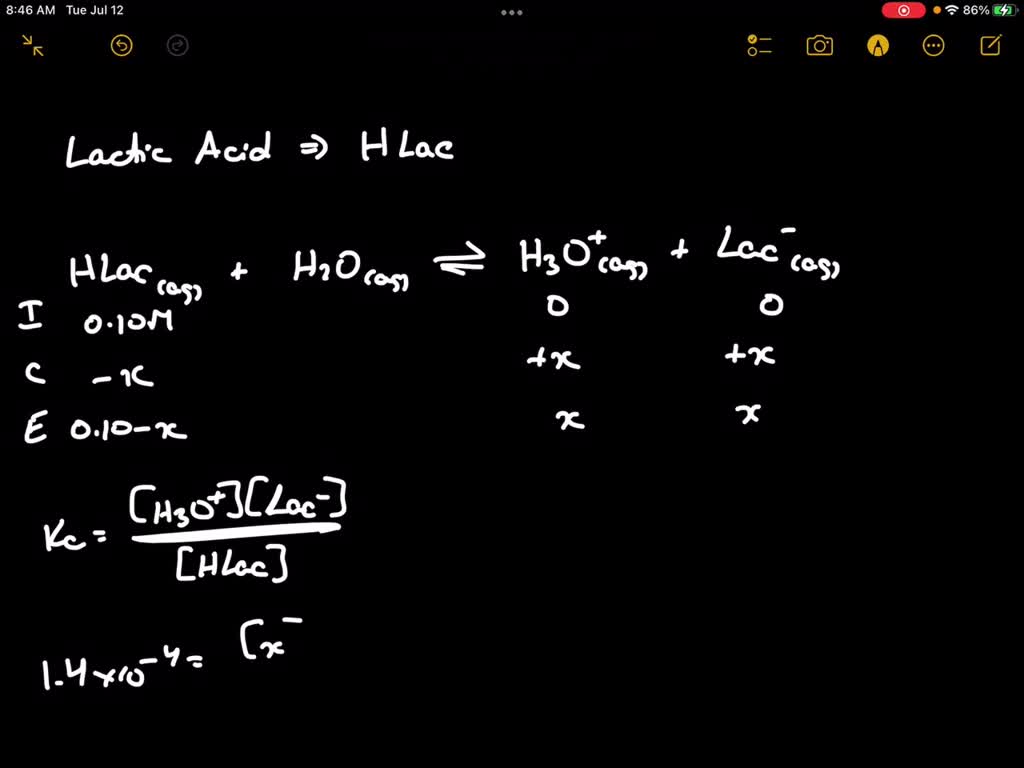 8:46 AM Tue Jul 12 86%
Lactic Acid ⇒ HLac
HLac(aq) + H2O(aq) ⇌ H3O+(aq) + Lac-(aq)
I 0.10M 0 0
C -x +x +x
E 0.10-x x x
Kc = [H3O+][Lac-] / [HLac]
1.4×10^-4 = [x-